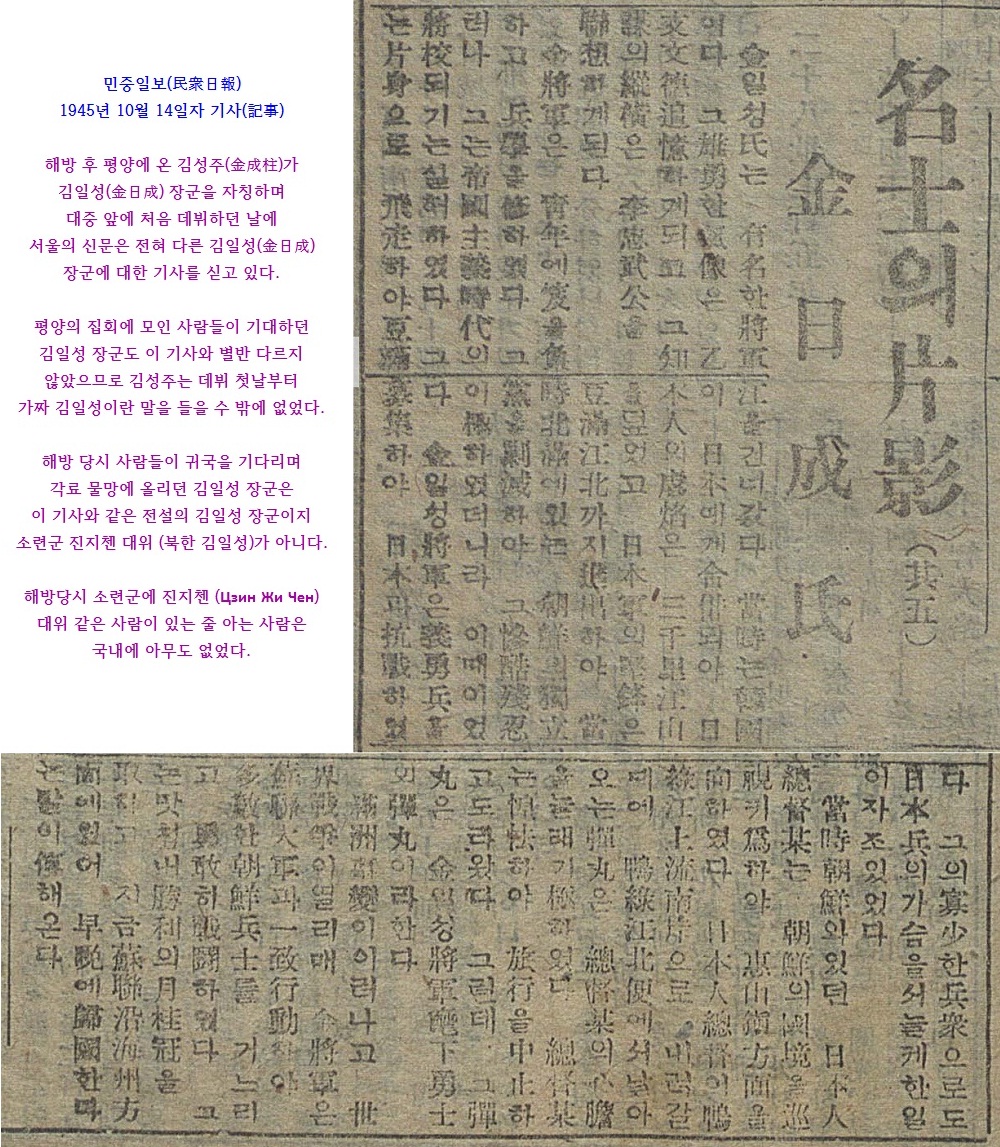 민중일보(民衆日報)
1945년 10월 14일자 기사(記事)
해방 후 평양에 온 김성주(金成柱)가
김일성(金日成) 장군을 자칭하며
대중 앞에 처음 데뷔하던 날에
서울의 신문은 전혀 다른 김일성(金日成)
장군에 대한 기사를 싣고 있다.
평양의 집회에 모인 사람들이 기대하던
김일성 장군도 이 기사와 별반 다르지
않았으므로 김성주는 데뷔 첫날부터
가짜 김일성이란 말을 들을 수 밖에 없었다.
해방 당시 사람들이 귀국을 기다리며
각료 물망에 올리던 김일성 장군은
이 기사와 같은 전설의 김일성 장군이지
소련군 진지첸 대위 (북한 김일성)가 아니다.
해방당시 소련군에 진지첸 (Цзин Жи Чен)
대위 같은 사람이 있는 줄 아는 사람은
국내에 아무도 없었다.
名士의片影 (其五)
金日成氏
金일성氏는 有名한將軍
이다 그雄勇한氣像은 乙
支文德追憶하게되고 그知
謀의縱橫은 李忠武公을
聯想하게된다
金將軍은 靑年에笈을負
하고 兵學을修하였다 그
러나 그는帝國主義時代의
將校되기는실허하였다 그
는片身으로 飛走하야豆滿
江을건너갔다 當時는韓國
이 日本에게合倂되야 日
本人의虐焰은 三千里江山
을덥엇고 日本軍의銳鋒은
豆滿江北까지進出하야 當
時北滿에있는 朝鮮의獨立
黨을剿滅하야 그慘酷殘忍
이極하였더니라 이때이었
다 金일성將軍은義勇兵을
募集하야 日本과抗戰하였
다 그의寡少한兵衆으로도
日本兵의가슴을서늘케한일
이자조있었다
當時朝鮮와있던 日本人
總督某는 朝鮮의國境을巡
視키爲하야 惠山鎭方面을
向하였다 日本人總督이鴨
綠江上流南岸으로 내려갈
때에 鴨綠江北便에서날아
오는彈丸은 總督某의心膽
을놀래기極하였다 總督某
는恒怯하야 旅行을中止하
고도라왔다 그런데 그彈
丸은 金일성將軍麾下勇士
의彈丸이라한다
滿洲事變이이러나고 世
界戰爭이열리매 金將軍은
蘇聯大軍과一致行動하야
多數한朝鮮兵士를 거느리
고 勇敢히戰鬪하였다 그
는맛침내勝利의月桂冠을
取하고 지금蘇聯沿海州方
面에있어 早晩에歸國한다
는말이傳해온다